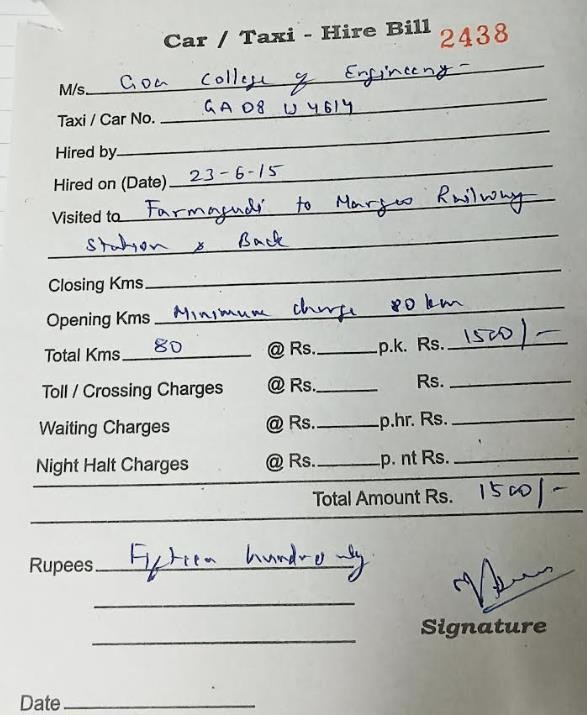 Car / Taxi - Hire Bill 2438
M/s. Goa College of Engineering -
Taxi / Car No. GA 08 U 4614
Hired by
Hired on (Date) 23-6-15
Visited to Farmagudi to Margao Railway
Station & Back
Closing Kms.
Opening Kms Minimum charge 80 km
Total Kms. 80 @ Rs. p.k. Rs. 1500/-
Toll / Crossing Charges @ Rs. Rs.
Waiting Charges @ Rs. p.hr. Rs.
Night Halt Charges @ Rs. p. nt Rs.
Total Amount Rs. 1500/-
Rupees Fifteen hundred only
Signature
Date